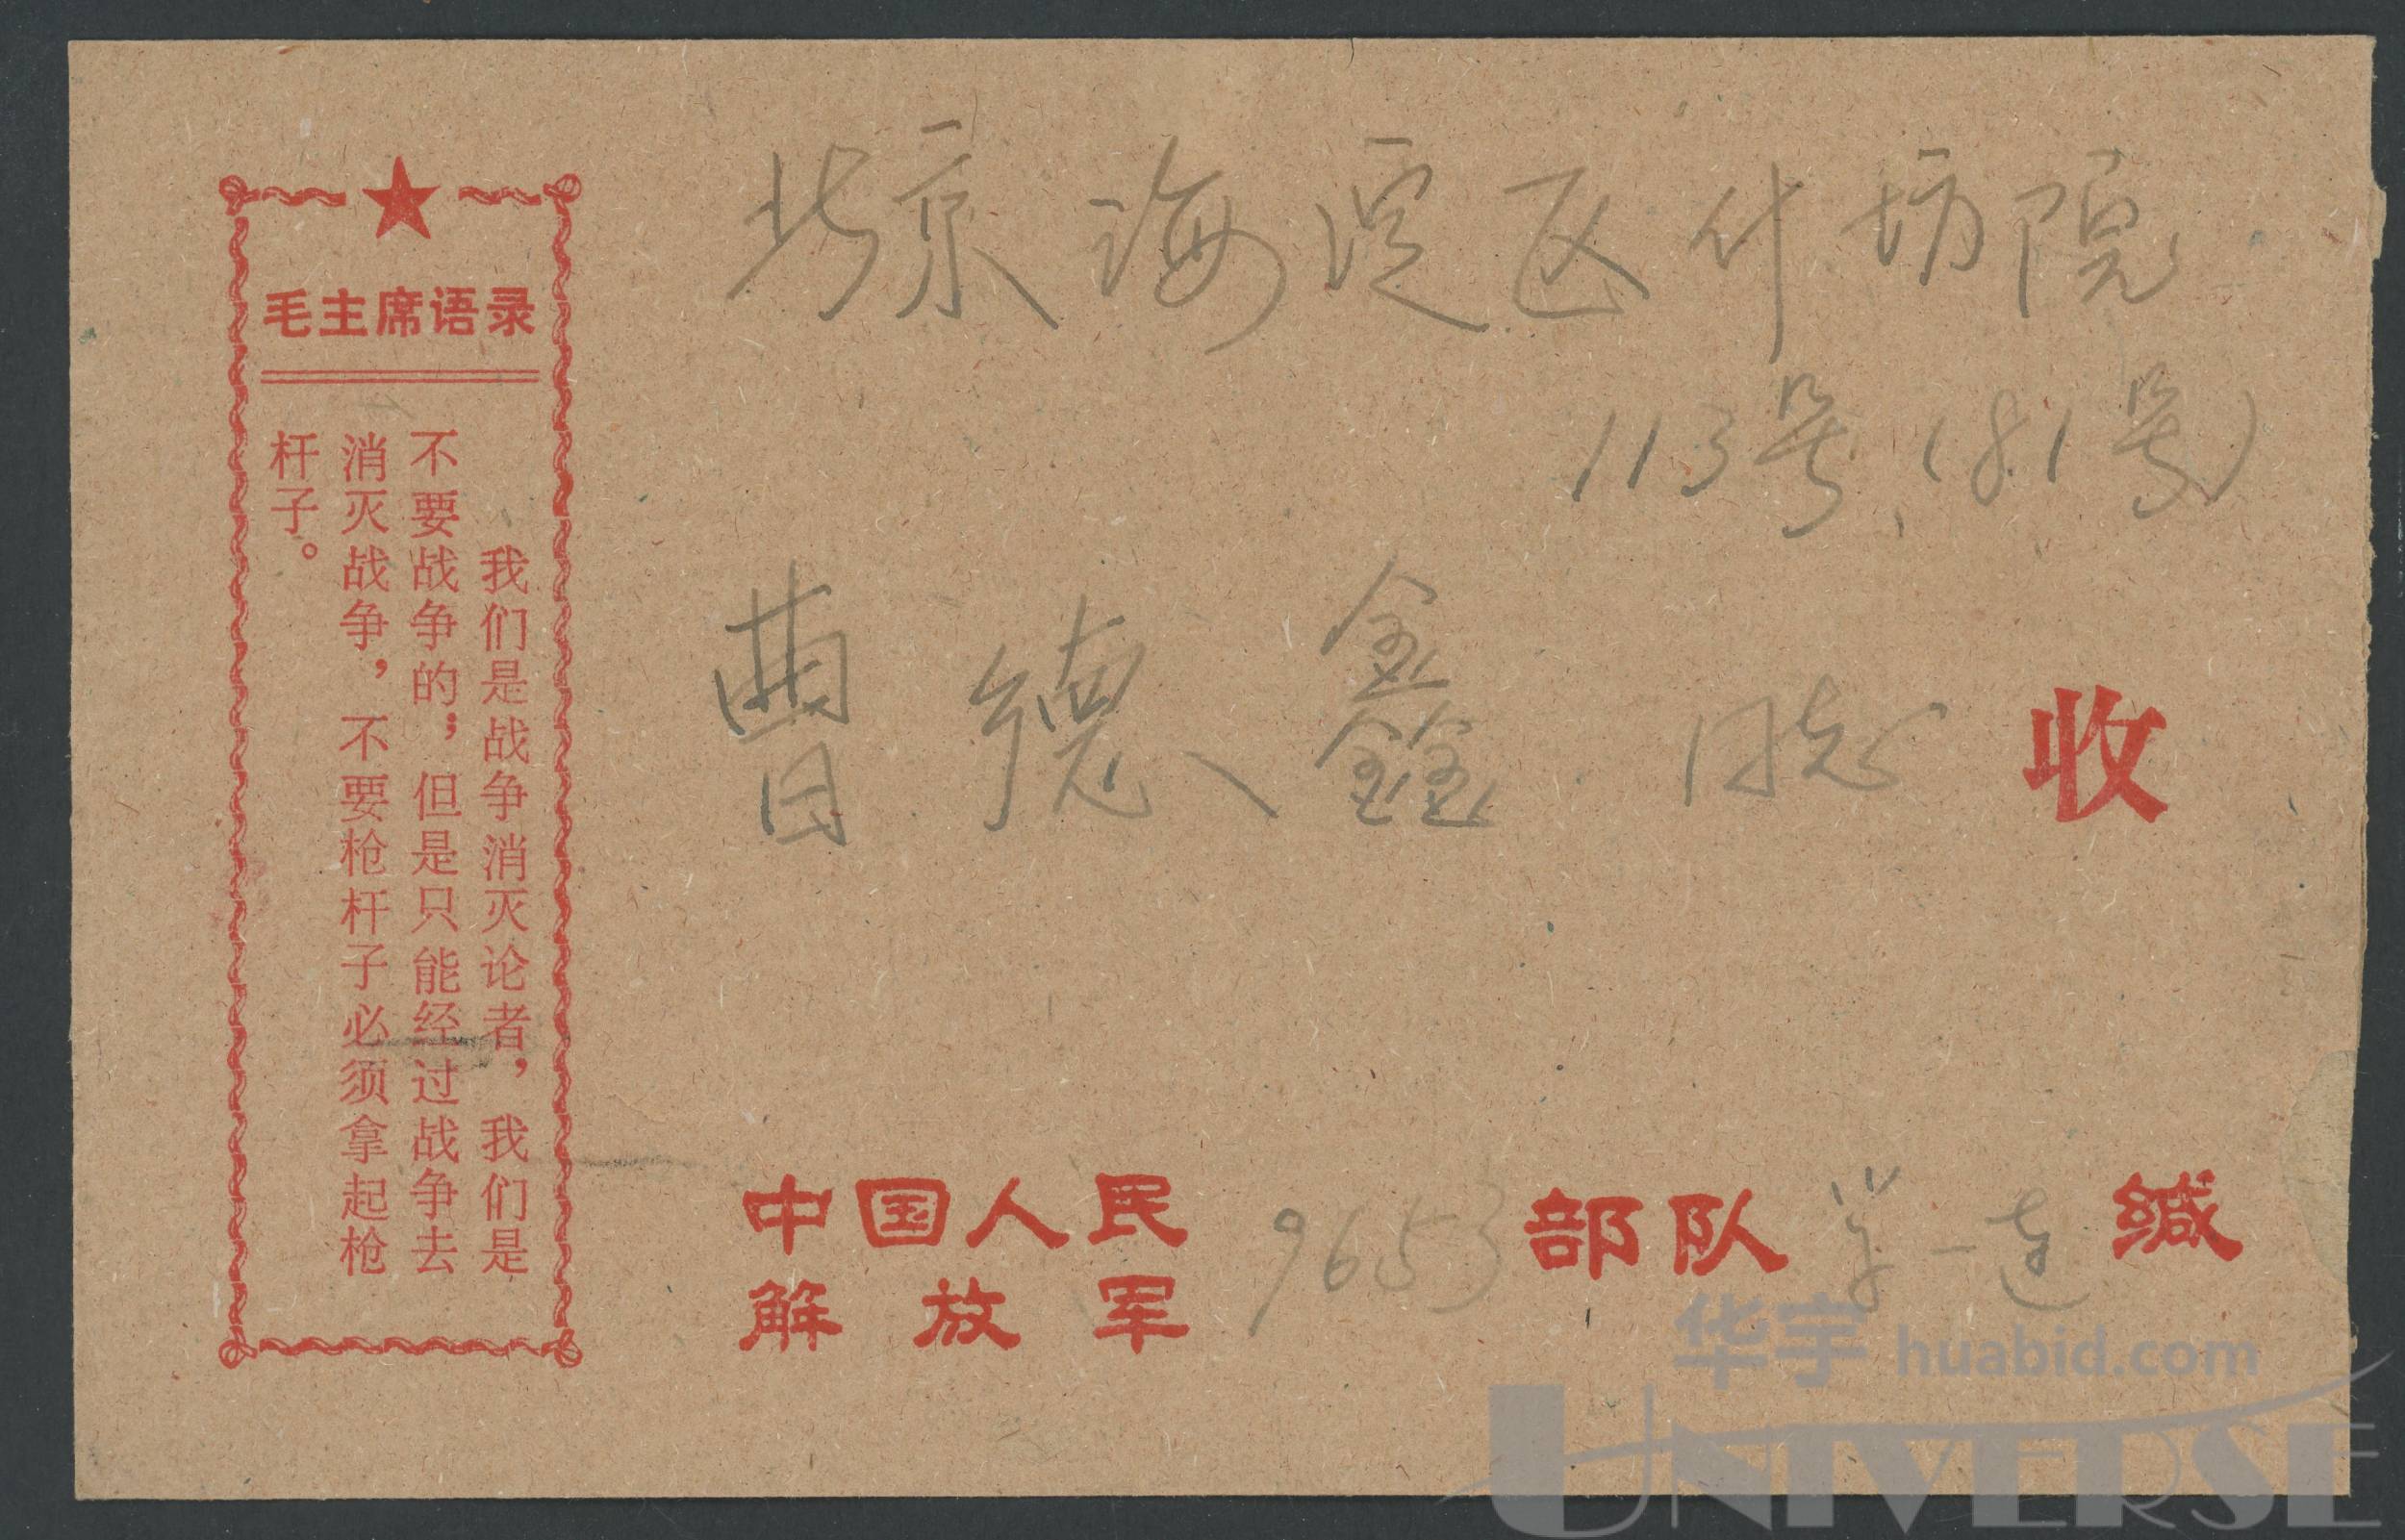 毛主席语录
我们是战争消灭论者，我们是
不要战争的；但是只能经过战争去
消灭战争，不要枪杆子必须拿起枪
杆子。
北京海淀区什坊院
113号(81号)
曹德鑫 同志 收
中国人民解放军 9653 部队 学一连 缄
华宇 huabid.com
UNIVERSE